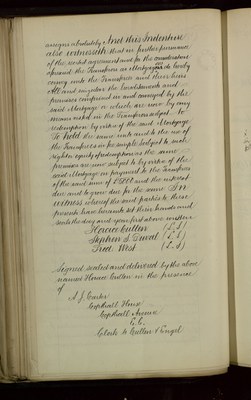 assigns absolutely And this Indenture
also witnesseth that in further performance
of the recited agreement and for the consideration
aforesaid the Transferors as Mortgagees do hereby
convey unto the Transferees and their heirs
All and singular the hereditaments and
premises comprised in and conveyed by the
said Mortgage or which are now by any
means vested in the Transferors subject to
redemption by virtue of the said Mortgage
To hold the same unto and to the use of
the Transferees in fee simple subject to such
right or equity of redemption as the same
premises are now subject to by virtue of the
said Mortgage on payment to the Transferees
of the said sum of and the interest
due and to grow due for the same In
witness whereof the said parties to these
presents have hereunto set their hands and
seals the day and year first above written
Horace Cutler (L.S)
Stephen S. Duval (L.S)
Fred. West (L.S)
Signed sealed and delivered by the above
named Horace Cutler in the presence
of
A. J. Carter
Copthall House
Copthall Avenue
E.C.
Clerk to